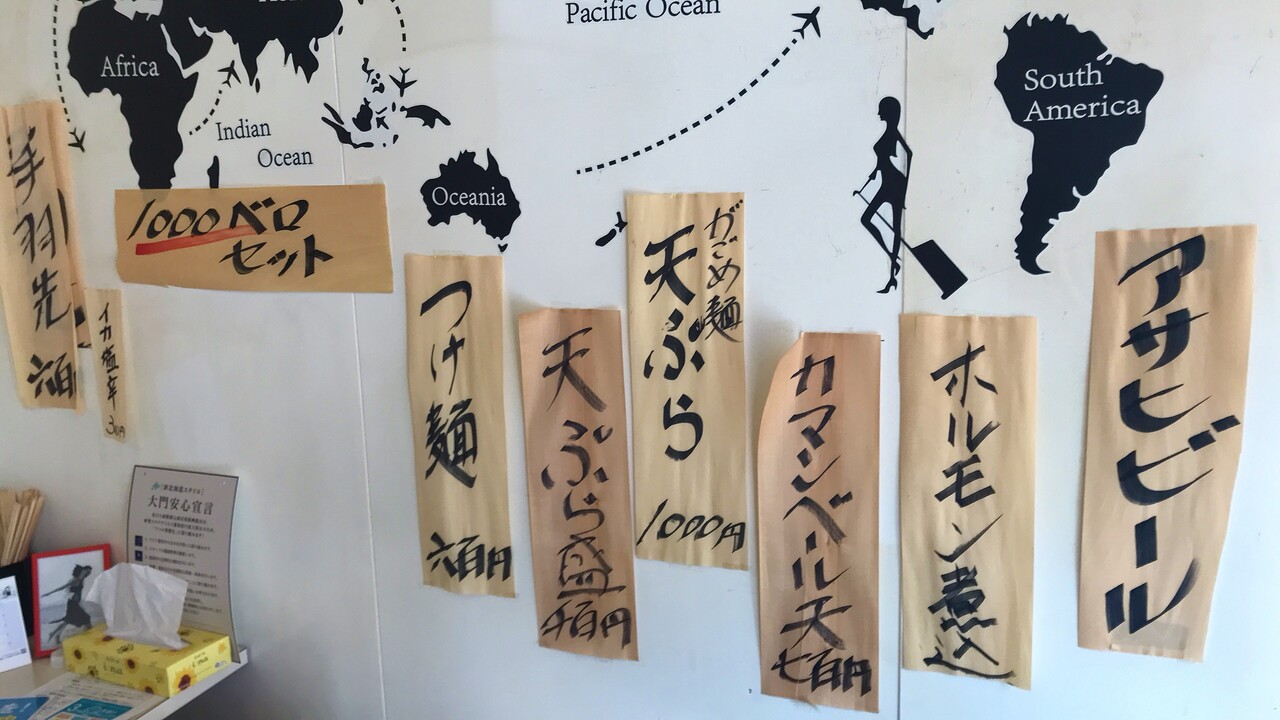 Pacific Ocean
Africa
Indian
Ocean
Oceania
South
America
手羽先 六百
1000ベロ
セット
イカ塩辛 3百円
つけ麺 六百円
天ぷら盛 千百円
がごめ麺
天ぷら 1000円
カマンベール天 七百円
ホルモン煮込
アサヒビール
大門安心宣言